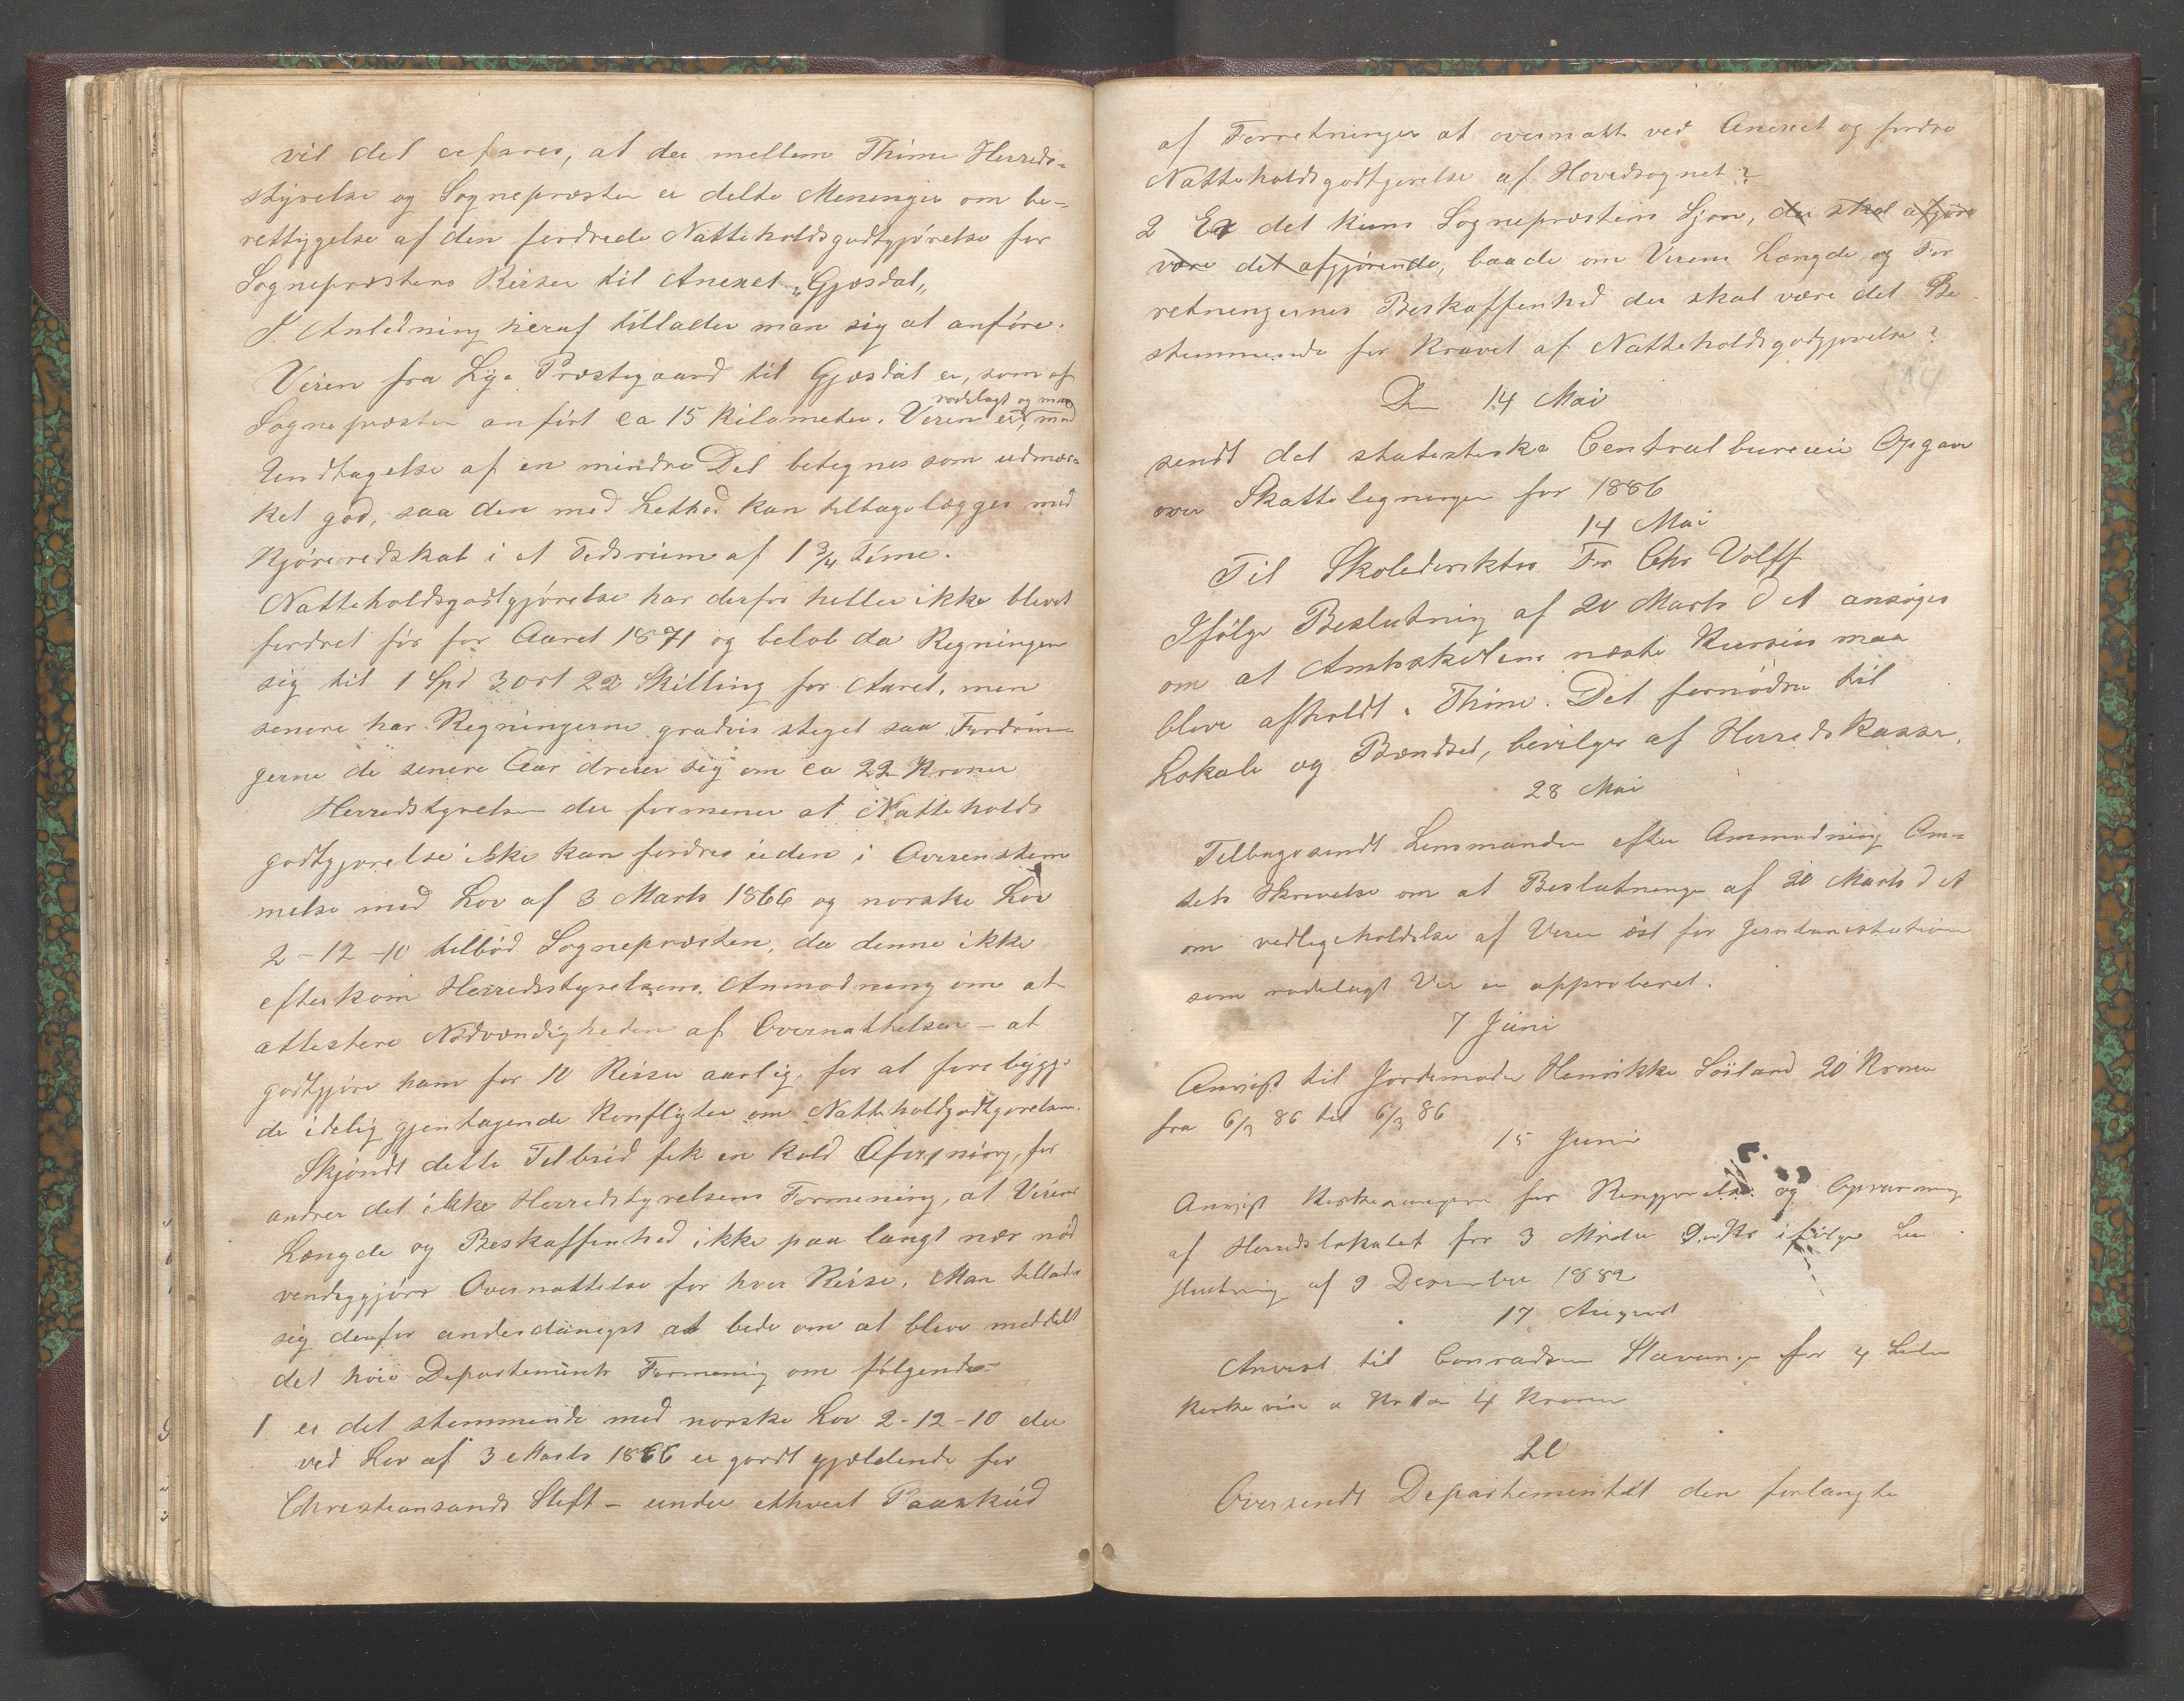 vil det erfares, at der mellem Thime Herreds-
styrelse og Sognepræsten er delte Meninger om be-
rettygelse af den fordrede Natteholdsgodtgjörelse for
Sognepræstens Reiser til Anexet „Gjæsdal„
I Anledning heraf tillader man sig at anföre:
Veien fra Lye Præstegaard til Gjæsdal er, som af
Sognepræsten anfört ca 15 Kilometer. Veien er, med
rodelagt og
Undtagelse af en mindre Del betegnes som udmær-
ket god, saa den med Lethed kan tilbagelægges med
Kjöreredskab i et Tidsrum af 1 3/4 Time.
Natteholdsgodtgjörelse har derfor heller ikke blevet
fordret för for Aaret 1871 og belöb da Regningen
sig til 1 Spd 3 Ort 22 Skilling for Aaret, men
senere har Regningerne gradvis steget saa Fordrin-
gerne de senere Aar dreier sig om ca 22 Kroner
Herredstyrelsen der formener at Natteholds
godtgjörelse ikke kan fordres uden i Overenstem
melse med Lov af 3 Marts 1866 og norske Lov
2-12-10 tilböd Sognepræsten, da denne ikke
efterkom Herredsstyrelsens Anmodning om at
attestere Nödvendigheden af Overnattelsen - at
godtgjöre ham for 10 Reiser aarlig, for at forebygge
de idelig gjentagende Konflikter om Natteholdsgodtgjörelsen.
Skjöndt dette Tilbud fik en kold Afvisning, for
andrer det ikke Herredstyrelsens Formening, at Veiens
Længde og Beskaffenhed ikke paa langt nær nöd
vendiggjörr Overnattelse for hver Reise. Man tillader
sig derfor underdanigst at bede om at blive meddelt
det höie Departements Formening om fölgende
1. er det stemmende med norske Lov 2-12-10 der
ved Lov af 3 Marts 1866 er gjordt gjældende for
Christiansands Stift - under ethvert Paaskud
af Forretninger at overnatte ved Anexet og fordre
Natteholdsgodtgjörelse af Hovedsognet?
2 Er det kuns Sognepræstens Sjön, der skal afgjöre
være det afgjörende, baade om Veiens Længde og For
retningernes Beskaffenhed der skal være det Be
stemmende for Kravet af Natteholdsgodgjörelse?
Den 14 Mai
sendt det statestiske Centralbureau Opgave
over Skatteligningen for 1886
14 Mai
Til Skoledirektör Fr Chr Volff
Ifölge Beslutning af 20 Marts d A ansöges
om at Amtsskolens næste Kursus maa
blive afholdt i Thime. Det fornödne til
Lokale og Brændsel, bevilges af Herredskassen.
28 Mai
Tilbagesendt Lensmanden efter Anmodning Am-
tets Skrivelse om at Beslutningen af 20 Marts d A
om vedligeholdelse af Veien öst for Jernbanestationen
som rodelagt Vei er approberet.
7 Juni
Anvist til Jordemoder Henrikke Söiland 20 Kroner
fra 6/3 86 til 6/3 86
15 Juni
Anvist Kirkesangeren for Rengjörelse og Opvarming
af Herredslokalet for 3 Mndr 9 Kr ifölge Be
slutning af 9 Desember 1882
17 August
Anvist til Conradsen Stavanger for 4
4 Kroner
21
Oversendt Departementet den forlangte